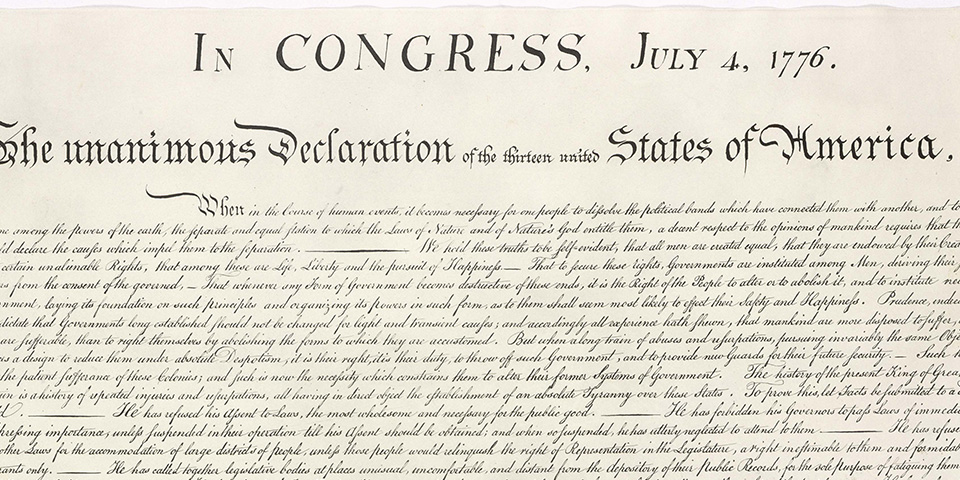 IN CONGRESS, JULY 4, 1776.
The unanimous Declaration of the thirteen united States of America,
When in the Course of human events, it becomes necessary for one people to dissolve the political bands which have connected them with another, and to
me among the powers of the earth, the separate and equal station to which the Laws of Nature and of Nature's God entitle them, a decent respect to the opinions of mankind requires that th
ld declare the causes which impel them to the separation. ——— We hold these truths to be self-evident, that all men are created equal, that they are endowed by their Crea
certain unalienable Rights, that among these are Life, Liberty and the pursuit of Happiness.— That to secure these rights, Governments are instituted among Men, deriving their j
rs from the consent of the governed, — That whenever any Form of Government becomes destructive of these ends, it is the Right of the People to alter or to abolish it, and to institute ne
nment, laying its foundation on such principles and organizing its powers in such form, as to them shall seem most likely to effect their Safety and Happiness. Prudence, indee
dictate that Governments long established should not be changed for light and transient causes; and accordingly all experience hath shewn, that mankind are more disposed to suffer,
are sufferable, than to right themselves by abolishing the forms to which they are accustomed. But when a long train of abuses and usurpations, pursuing invariably the same Obje
ces a design to reduce them under absolute Despotism, it is their right, it is their duty, to throw off such Government, and to provide new Guards for their future security. — Such h
the patient sufferance of these Colonies; and such is now the necessity which constrains them to alter their former Systems of Government. The history of the present King of Grea
ain is a history of repeated injuries and usurpations, all having in direct object the establishment of an absolute Tyranny over these States. To prove this, let Facts be submitted to a
d. ——— He has refused his Assent to Laws, the most wholesome and necessary for the public good. ——— He has forbidden his Governors to pass Laws of immedi
pressing importance, unless suspended in their operation till his Assent should be obtained; and when so suspended, he has utterly neglected to attend to them. ——— He has refuse
other Laws for the accommodation of large districts of people, unless those people would relinquish the right of Representation in the Legislature, a right inestimable to them and formidab
rants only. ——— He has called together legislative bodies at places unusual, uncomfortable, and distant from the depository of their Public Records, for the sole purpose of fatiguing them